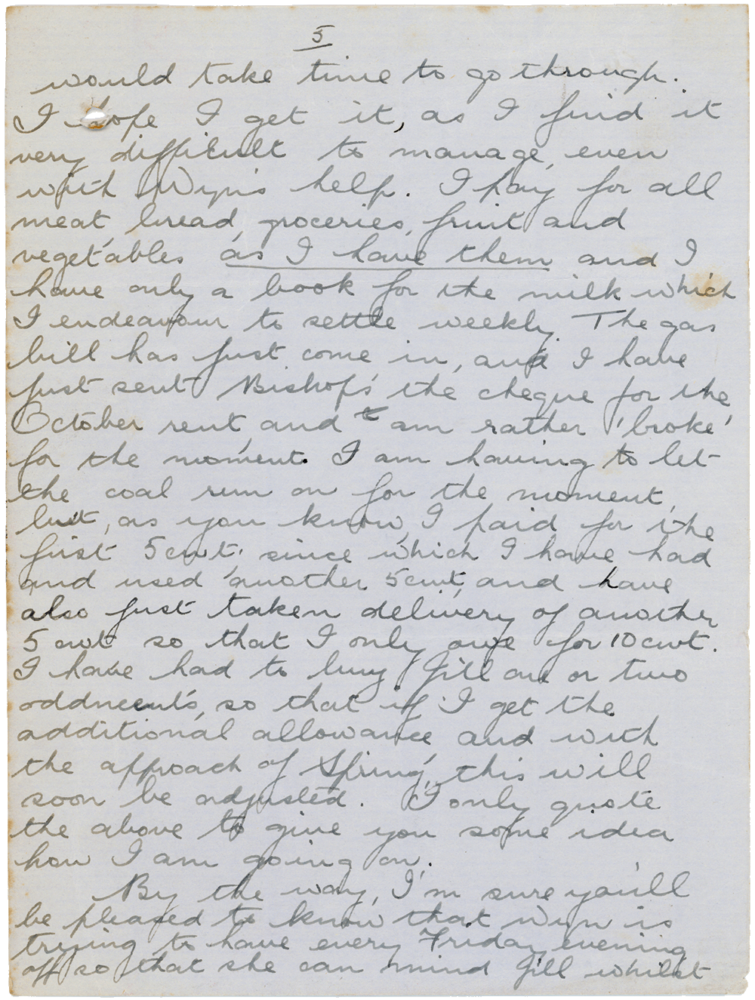 5
would take time to go through.
I hope I get it, as I find it
very difficult to manage, even
with Wyn's help. I pay for all
meat bread, groceries, fruit and
vegetables as I have them and I
have only a book for the milk which
I endeavour to settle weekly. The gas
bill has just come in, and I have
just sent Bishop's the cheque for the
October rent and I am rather 'broke'
for the moment. I am having to let
the coal run on for the moment,
but, as you know I paid for the
first 5 cwt. since which I have had
and used another 5 cwt, and have
also just taken delivery of another
5 cwt so that I only owe for 10 cwt.
I have had to buy Jill one or two
oddments, so that if I get the
additional allowance and with
the approach of Spring, this will
soon be adjusted. I only quote
the above to give you some idea
how I am going on.
By the way, I'm sure you'll
be pleased to know that Wyn is
trying to have every Friday evening
off so that she can mind Jill whilst